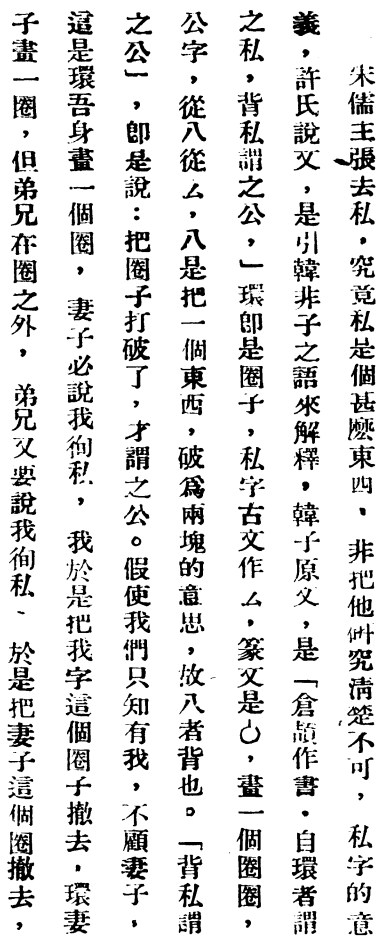 宋儒主張去私，究竟私是個甚麼東西、非把他研究清楚不可，私字的意
義，許氏說文，是引韓非子之語來解釋，韓子原文，是「倉頡作書，自環者謂
之私，背私謂之公，」環卽是圈子，私字古文作厶，篆文是○，畫一個圈圈，
公字，從八從厶，八是把一個東西，破爲兩塊的意思，故八者背也。「背私謂
之公」，卽是說：把圈子打破了，才謂之公。假使我們只知有我，不顧妻子，
這是環吾身畫一個圈，妻子必說我徇私，我於是把我字這個圈子撤去，環妻
子畫一圈，但弟兄在圈之外，弟兄又要說我徇私、於是把妻子這個圈撤去，